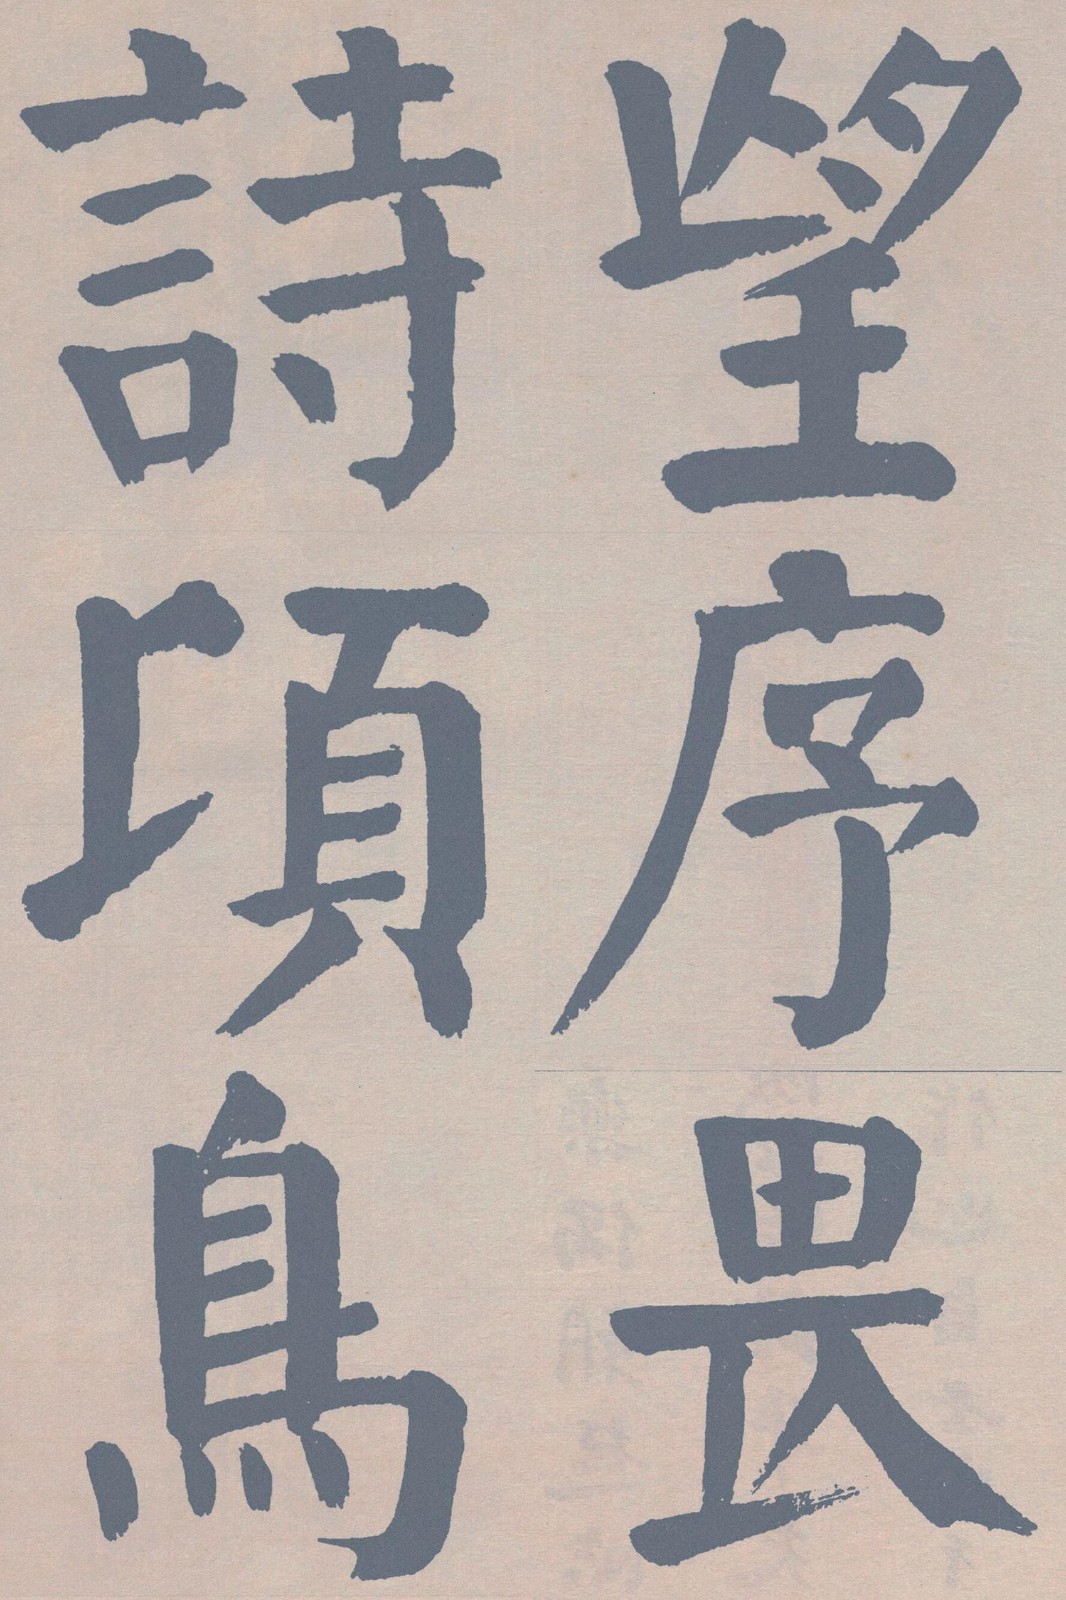 望序畏
詩頃鳥